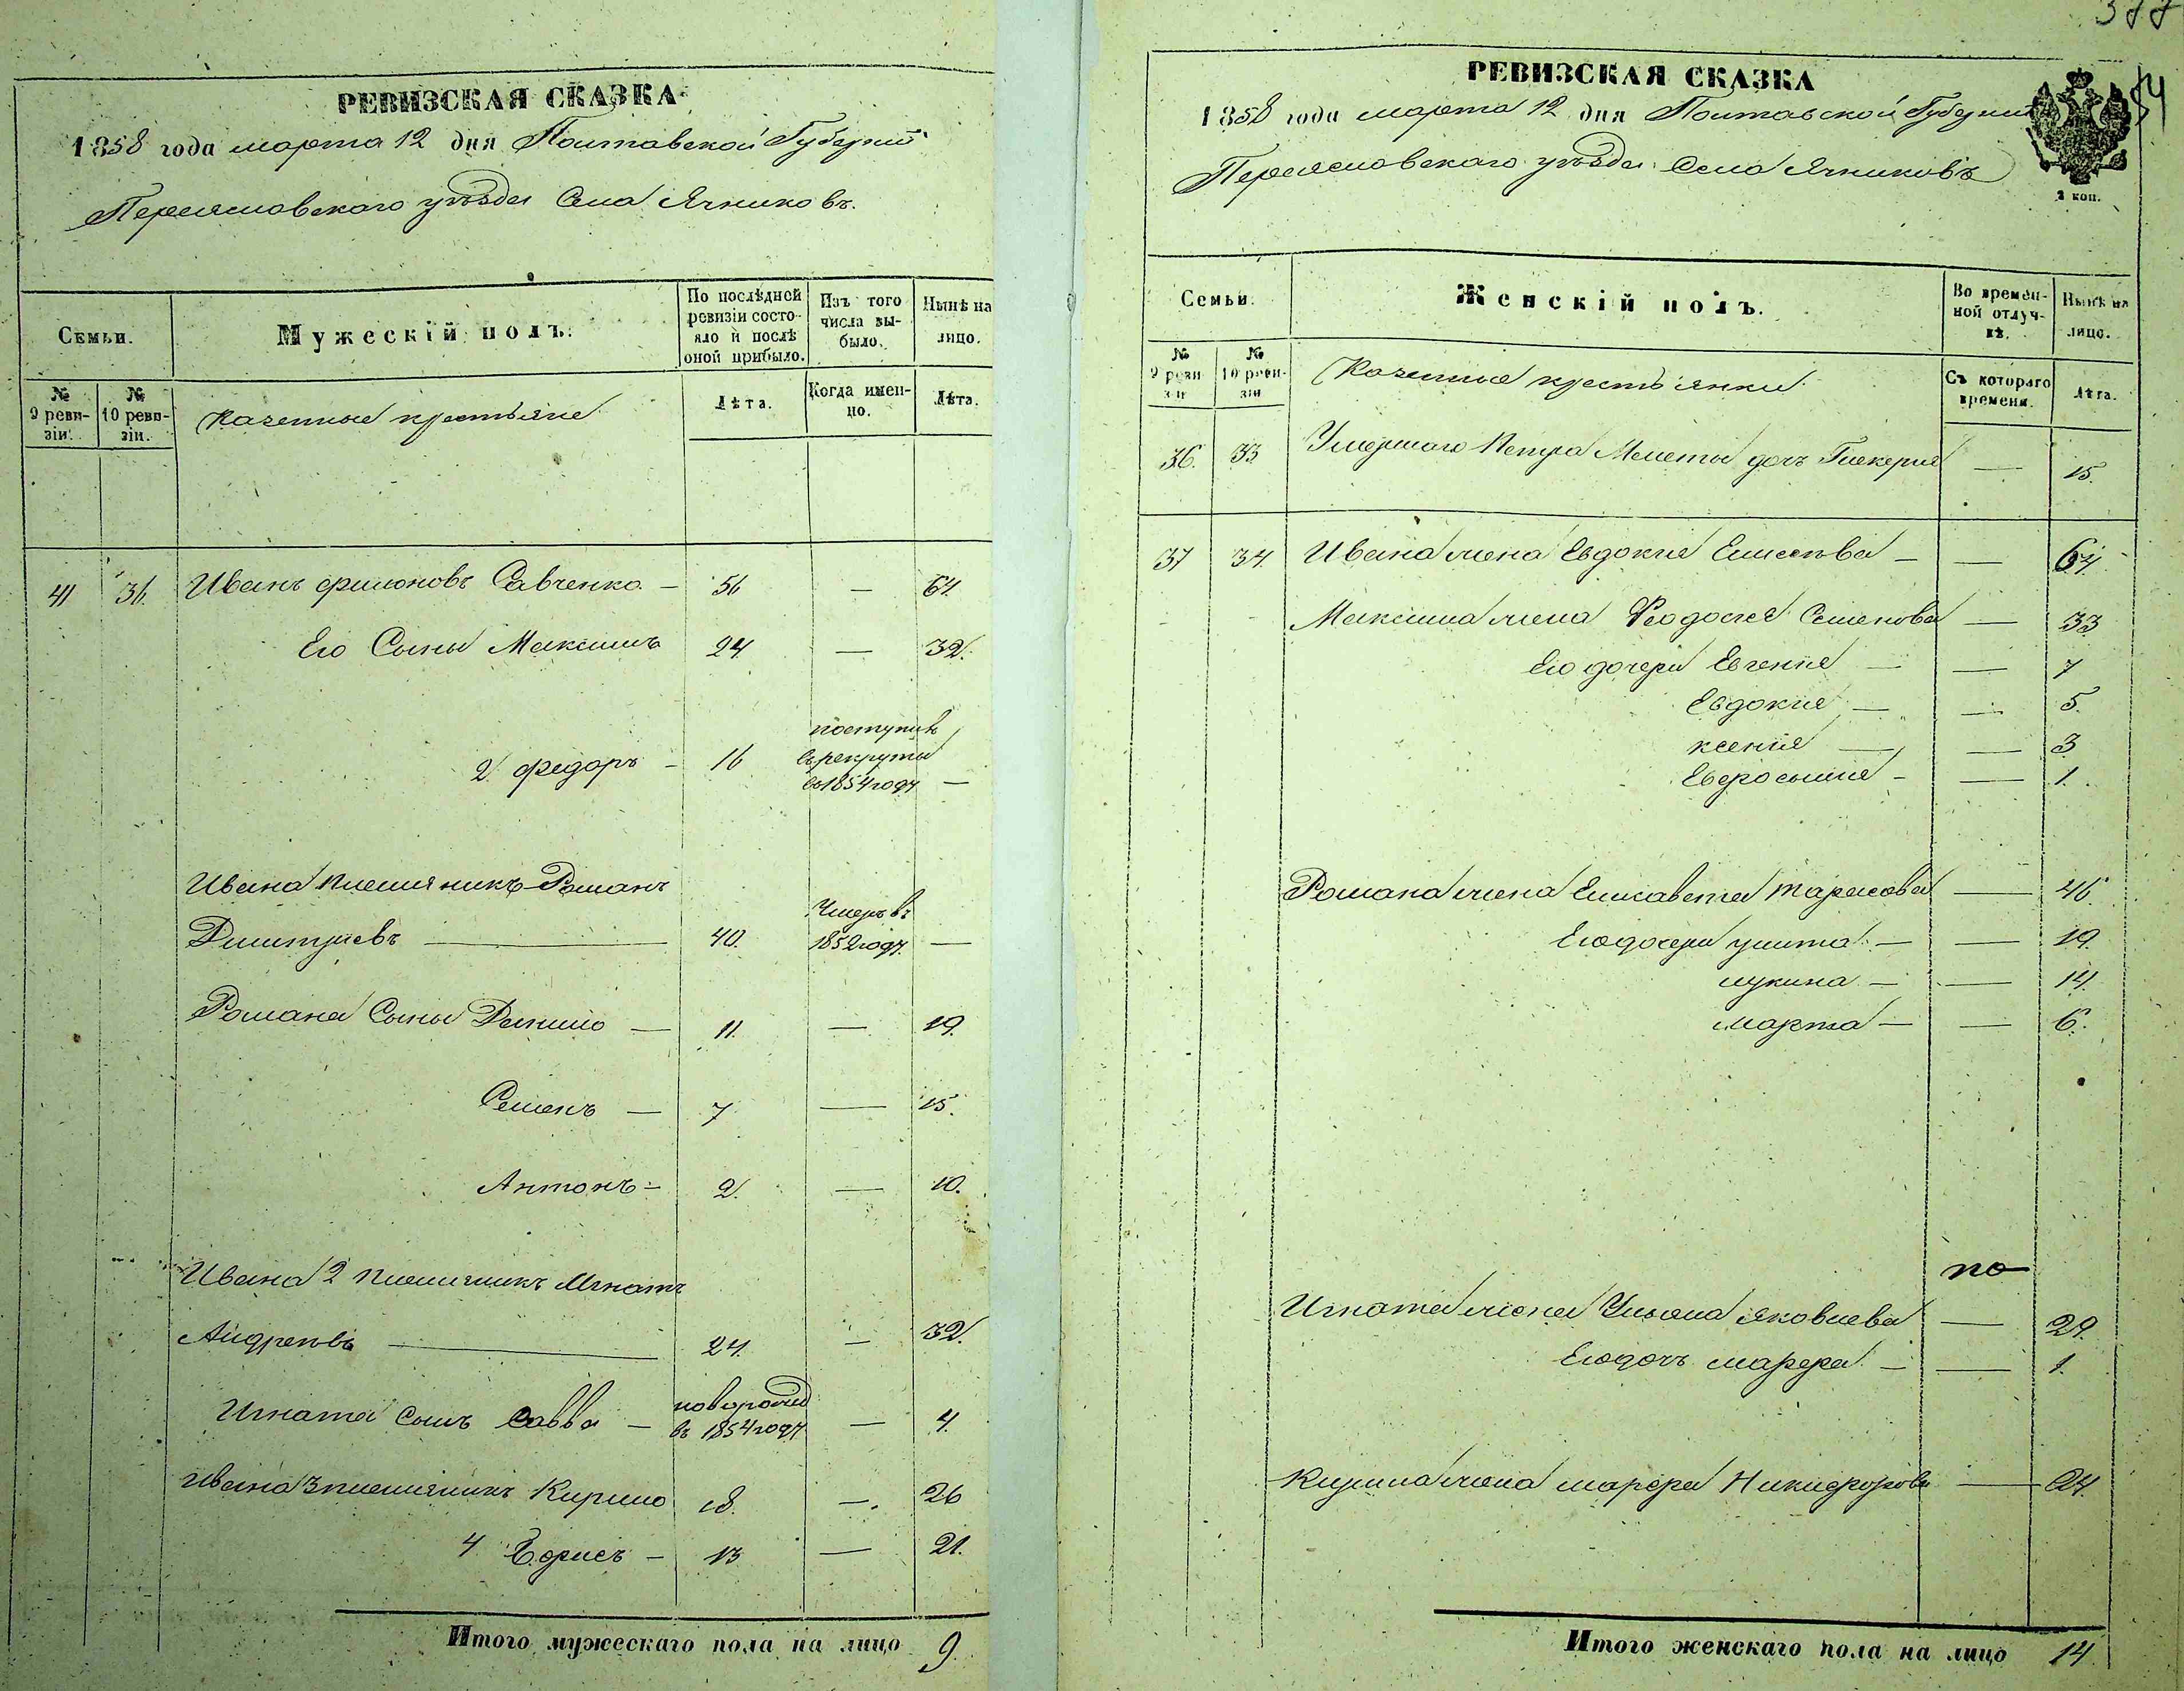 РЕВИЗСКАЯ СКАЗКА
1858 года марта 12 дня Полтавской Губерніи
Переяславскаго уѣзда Села Ячниковъ.
Семьи.
Мужескій полъ.
По послѣдней ревизіи состояло и послѣ оной прибыло.
Изъ того числа выбыло.
Нынѣ на лицо.
№ 9 ревизіи.
№ 10 ревизіи.
Казенные крестьяне
Лѣта.
Когда именно.
Лѣта.
41 36. Иванъ Филюновъ Савченко — 56 — 64.
Его Сыны Максимъ 24 — 32.
2 Федоръ — 16 поступилъ въ рекруты въ 1854 году —
Ивана племянникъ Романъ
Дмитріевъ — 40. Умеръ въ 1852 году. —
Романа Сыны Данило — 11. — 19.
Семенъ — 7 — 15.
Антонъ — 2. — 10.
Ивана 2 племянникъ Игнатъ
Андреевъ — 24. — 32.
Игната сынъ Савва — новорожд въ 1854 году — 4.
Ивана 3 племянникъ Кирило 18. — 26
4 Борисъ — 13 — 21.
Итого мужескаго пола на лицо 9.
377
54
РЕВИЗСКАЯ СКАЗКА
1858 года марта 12 дня Полтавской Губерніи
Переяславскаго уѣзда Села Ячниковъ
2 коп.
Семьи.
Женскій полъ.
Во временной отлучкѣ.
Нынѣ на лицо.
№ 9 ревизіи
№ 10 ревизіи
Казенные крестьянки
Съ котораго времени.
Лѣта.
36. 33 Умершаго Петра Мелеты дочь Гликерія — 15.
37 34. Ивана жена Евдокія Елисеева — — 64.
Максима жена Феодосія Семенова — 33
Его дочери Евгенія — — 7
Евдокія — — 5.
ксенія — — 3
Евфросинія — — 1.
Романа жена Елисавета Тарасова — 46.
Его дочери улита — — 19.
лукина — — 14.
марта — — 6.
по
Игната жена Ульяна Яковлева — 29.
Его дочь марфа — — 1.
Кирила жена марфа Никифорова — 24.
Итого женскаго пола на лицо 14